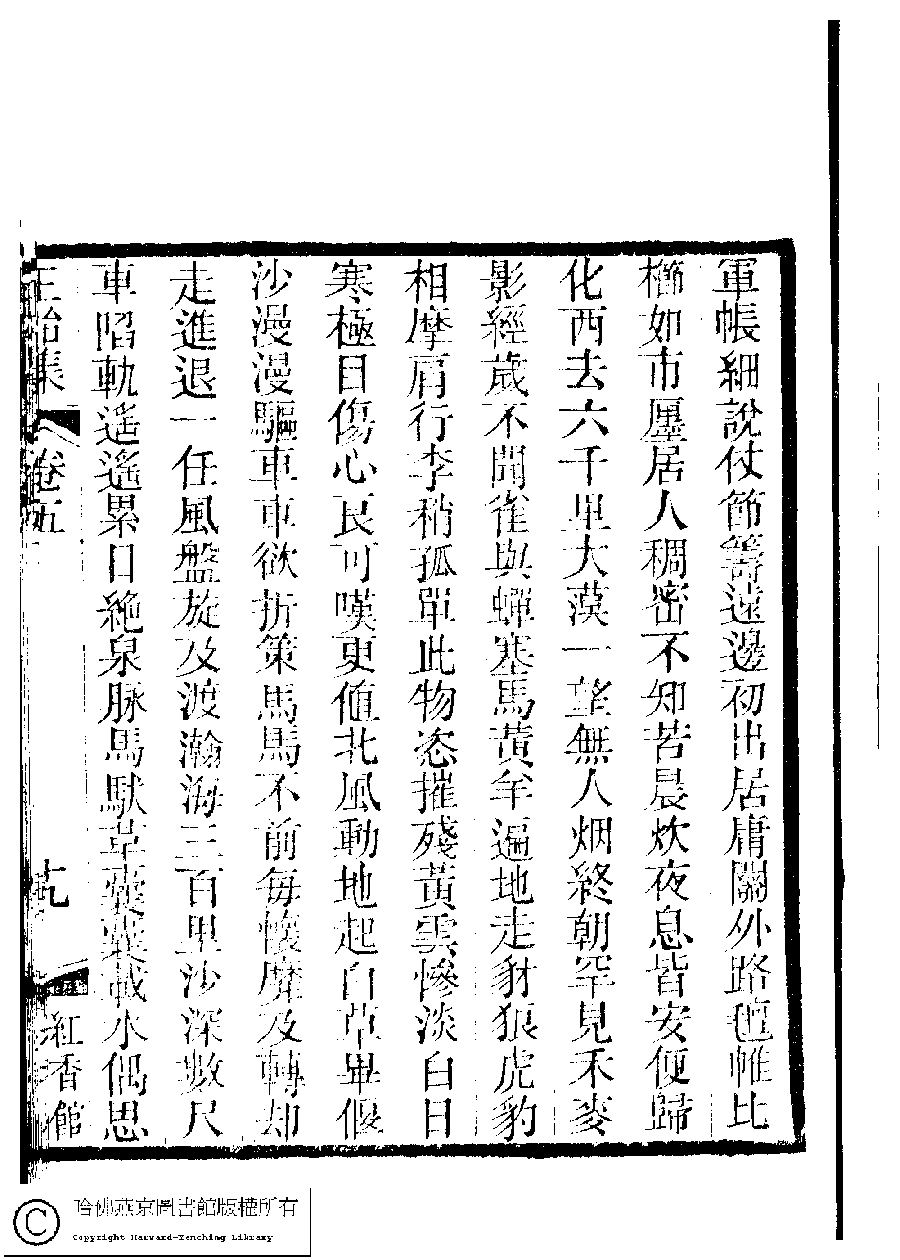 軍帳細說仗節籌遠邊初出居庸關外路氊帷比
櫛如市廛居人稠密不知苦晨炊夜息皆安便歸
化西去六千里大漠一望無人烟終朝罕見禾麥
影經歲不聞雀與蟬塞馬黃羊遍地走豺狼虎豹
相摩肩行李稍孤單此物恣摧殘黃雲慘淡白日
寒極目傷心良可嘆更値北風動地起白草畢偃
沙漫漫驅車車欲折策馬馬不前每懷靡及轉却
走進退一任風盤旋及渡瀚海三百里沙深數尺
車陷軌遙遙累日絶泉脉馬馱革囊囊載水偶思
卷五
十九
紅香館
哈佛燕京圖書館版權所有
Copyright Harvard-Yenching Library